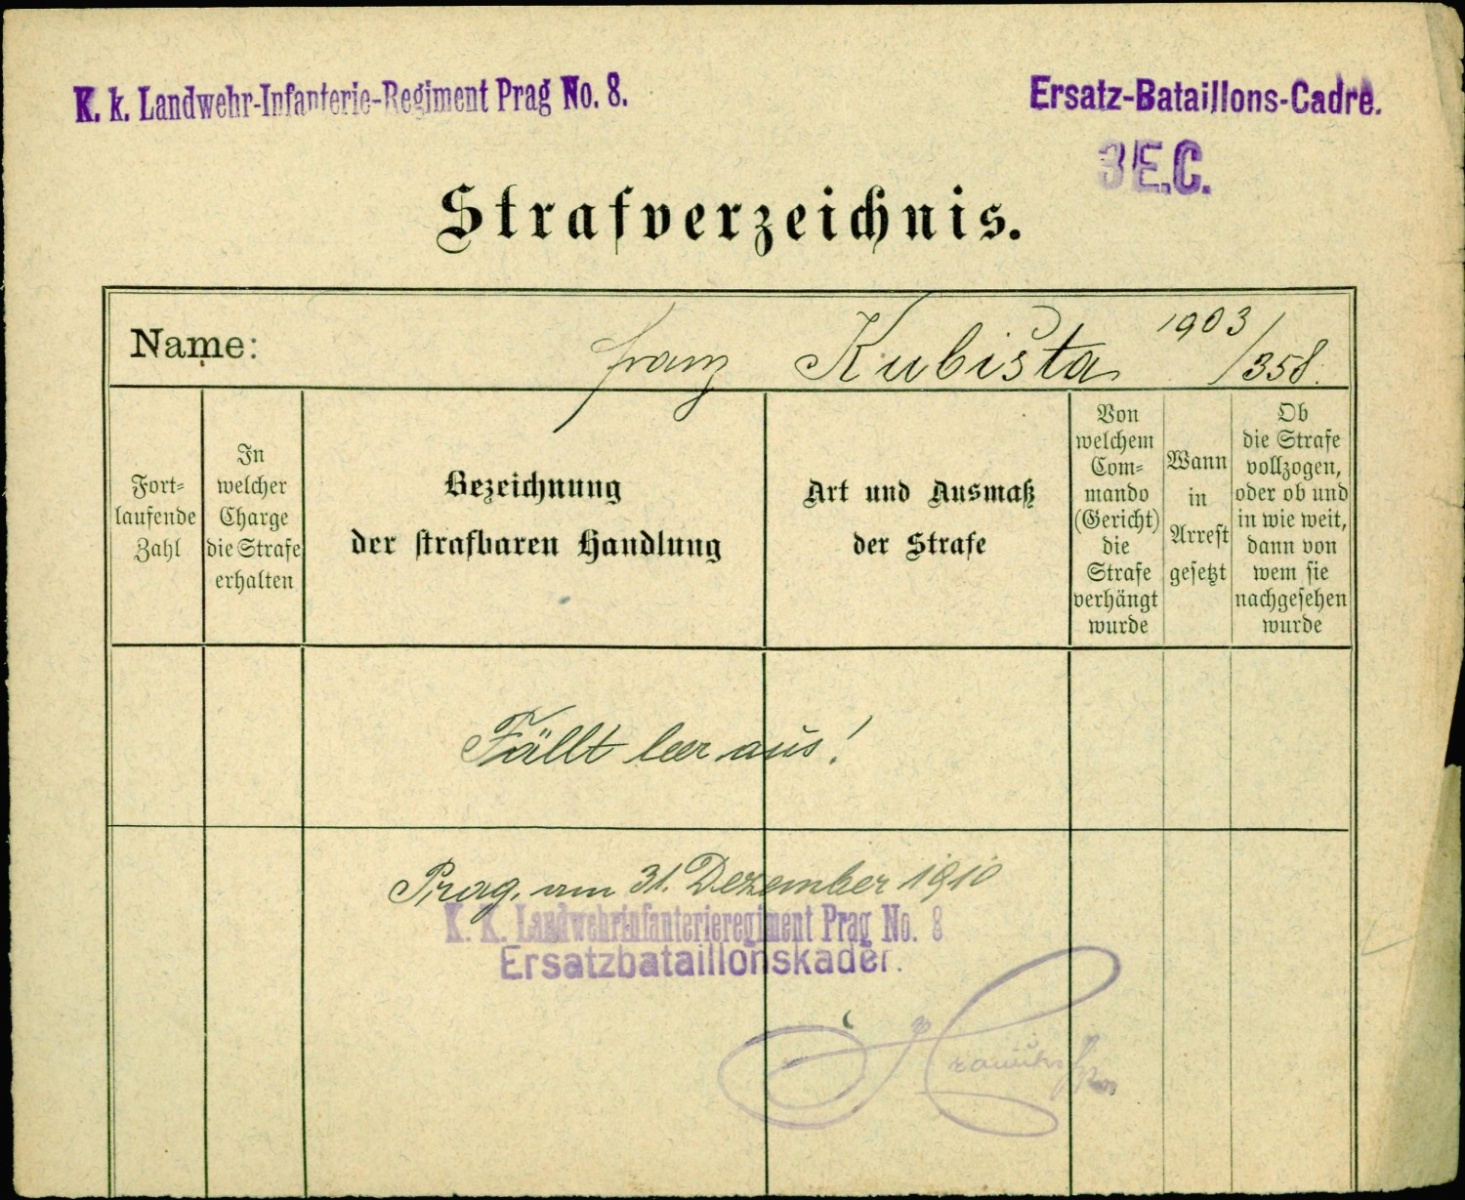 K. k. Landwehr-Infanterie-Regiment Prag No. 8.
Ersatz-Bataillons-Cadre.
3 E.C.
Strafverzeichnis.
Name: Franz Kubišta 1903/358.
Fort-
laufende
Zahl
In
welcher
Charge
die Strafe
erhalten
Bezeichnung
der strafbaren Handlung
Art und Ausmaß
der Strafe
Von
welchem
Com-
mando
(Gericht)
die
Strafe
verhängt
wurde
Wann
in
Arrest
gesetzt
Ob
die Strafe
vollzogen,
oder ob und
in wie weit,
dann von
wem sie
nachgesehen
wurde
Fällt leer aus!
Prag, am 31. Dezember 1910
K. K. Landwehrinfanterieregiment Prag No. 8
Ersatzbataillonskader.